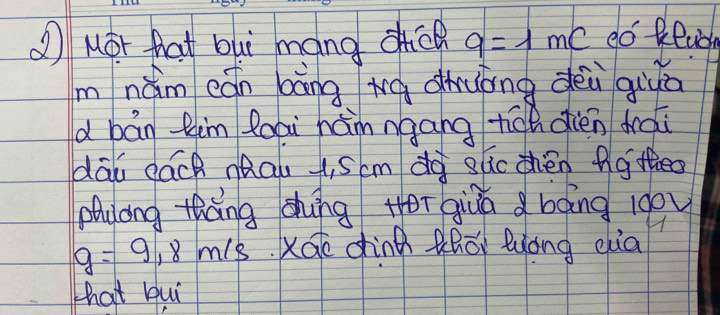 2) Một hạt bụi mang đtích q = 1 mC có khlượng
m nằm cân bằng trg đtrường đều giữa
2 bản kim loại nằm ngang tích điện trái
dấu cách nhau 1,5 cm đg sức điện hg theo
phương thẳng đứng HĐT giữa 2 bảng 100V
g = 9,8 m/s. Xác định khối lượng của
hạt bụi